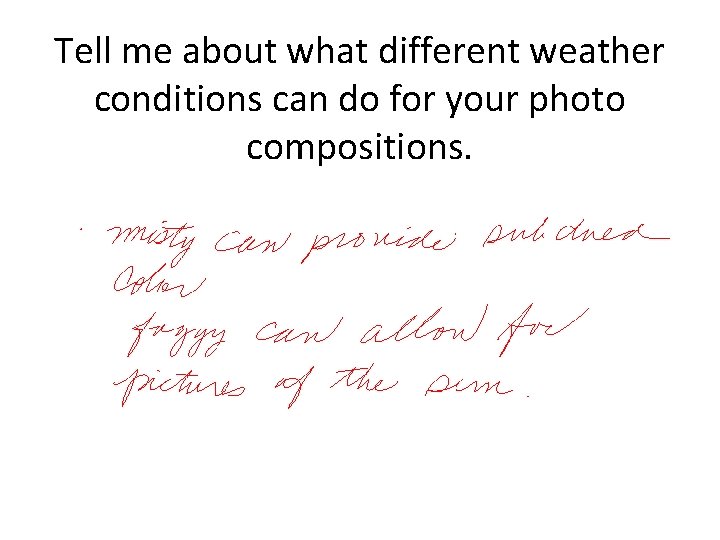 Tell me about what different weather
conditions can do for your photo
compositions.
· Misty can provide subdued
Color
foggy can allow for
pictures of the sun.